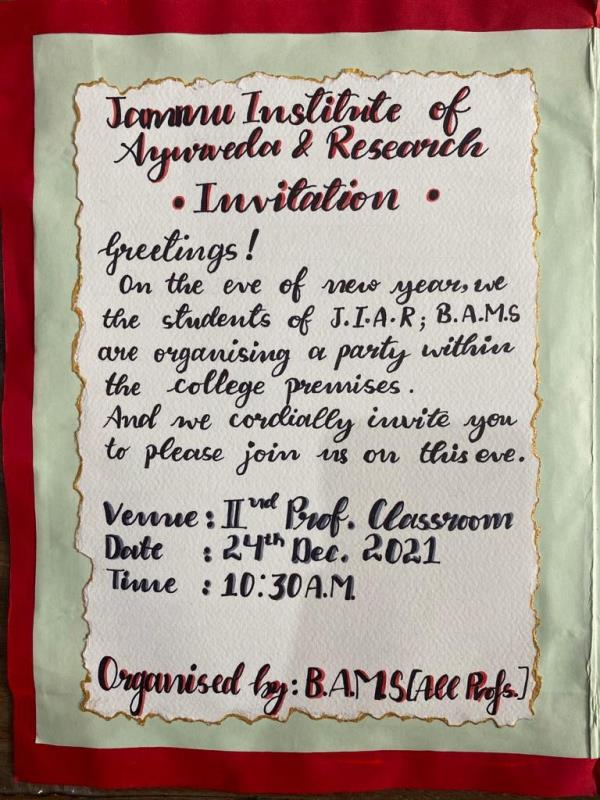 Jammu Institute of
Ayurveda & Research
• Invitation •
Greetings!
On the eve of new year, we
the students of J.I.A.R; B.A.M.S
are organising a party within
the college premises.
And we cordially invite you
to please join us on this eve.
Venue : IInd Prof. Classroom
Date : 24th Dec. 2021
Time : 10:30 A.M.
Organised by: B.A.M.S [All Profs.]